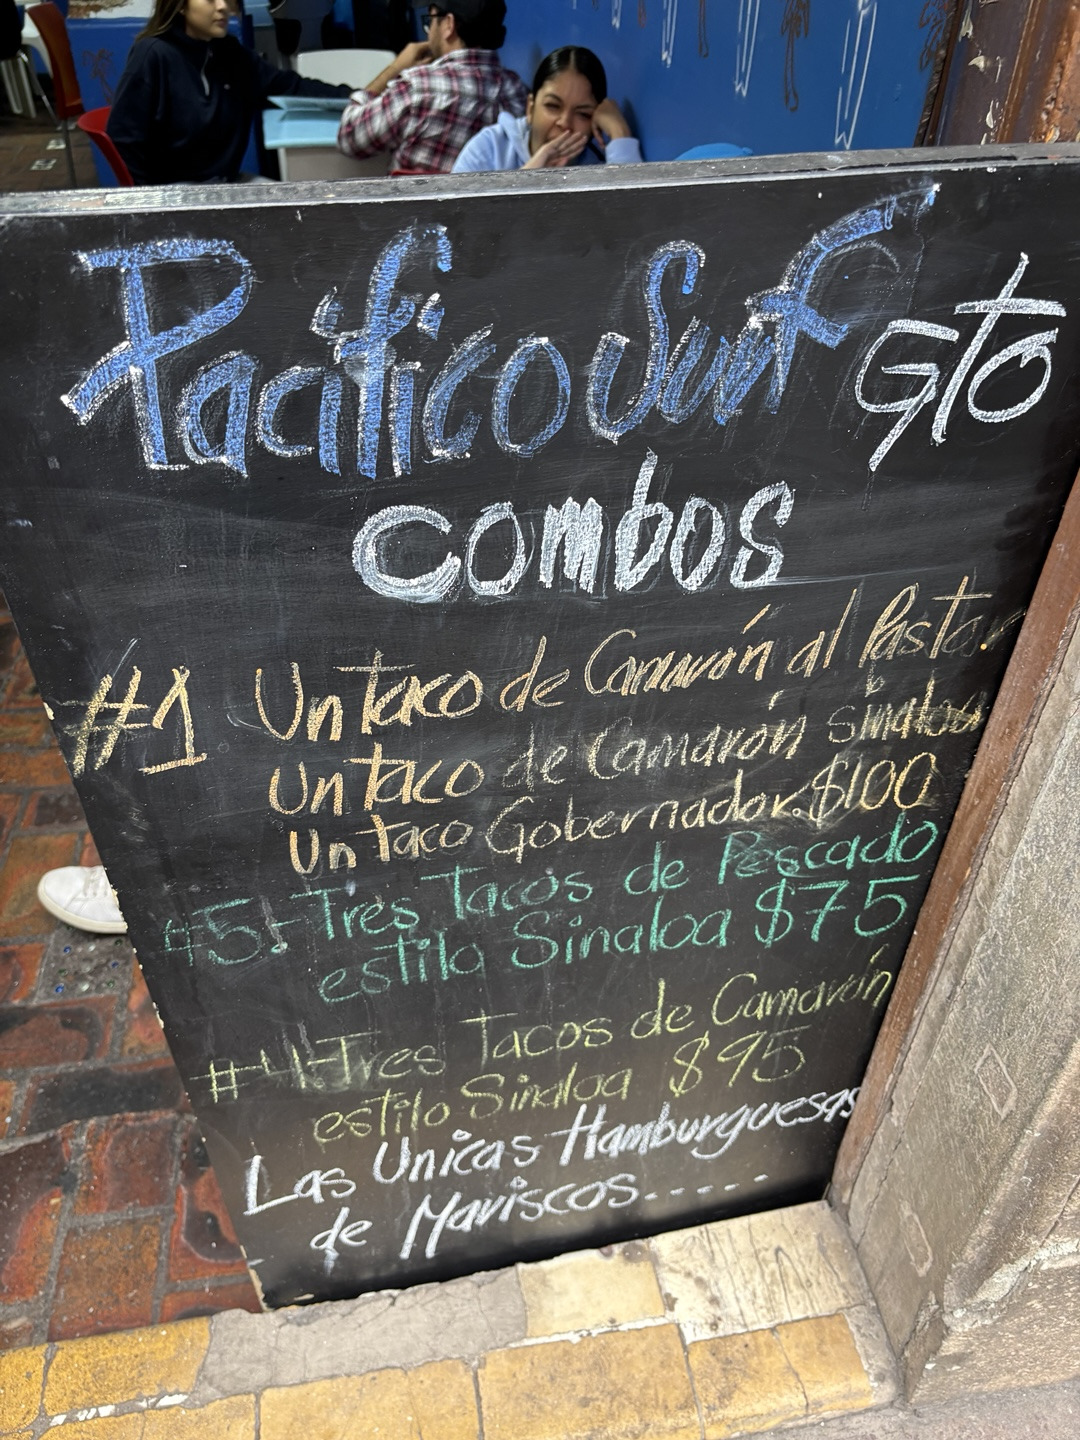 Pacifico Surf Gto
combos
#1 Un taco de Camarón al Pastor
Un taco de Camarón sinaloa
Un taco Gobernador $100
#5.- Tres Tacos de Pescado
estilo Sinaloa $75
#4.- Tres Tacos de Camarón
estilo Sinaloa $95
Las Unicas Hamburguesas
de Mariscos.....